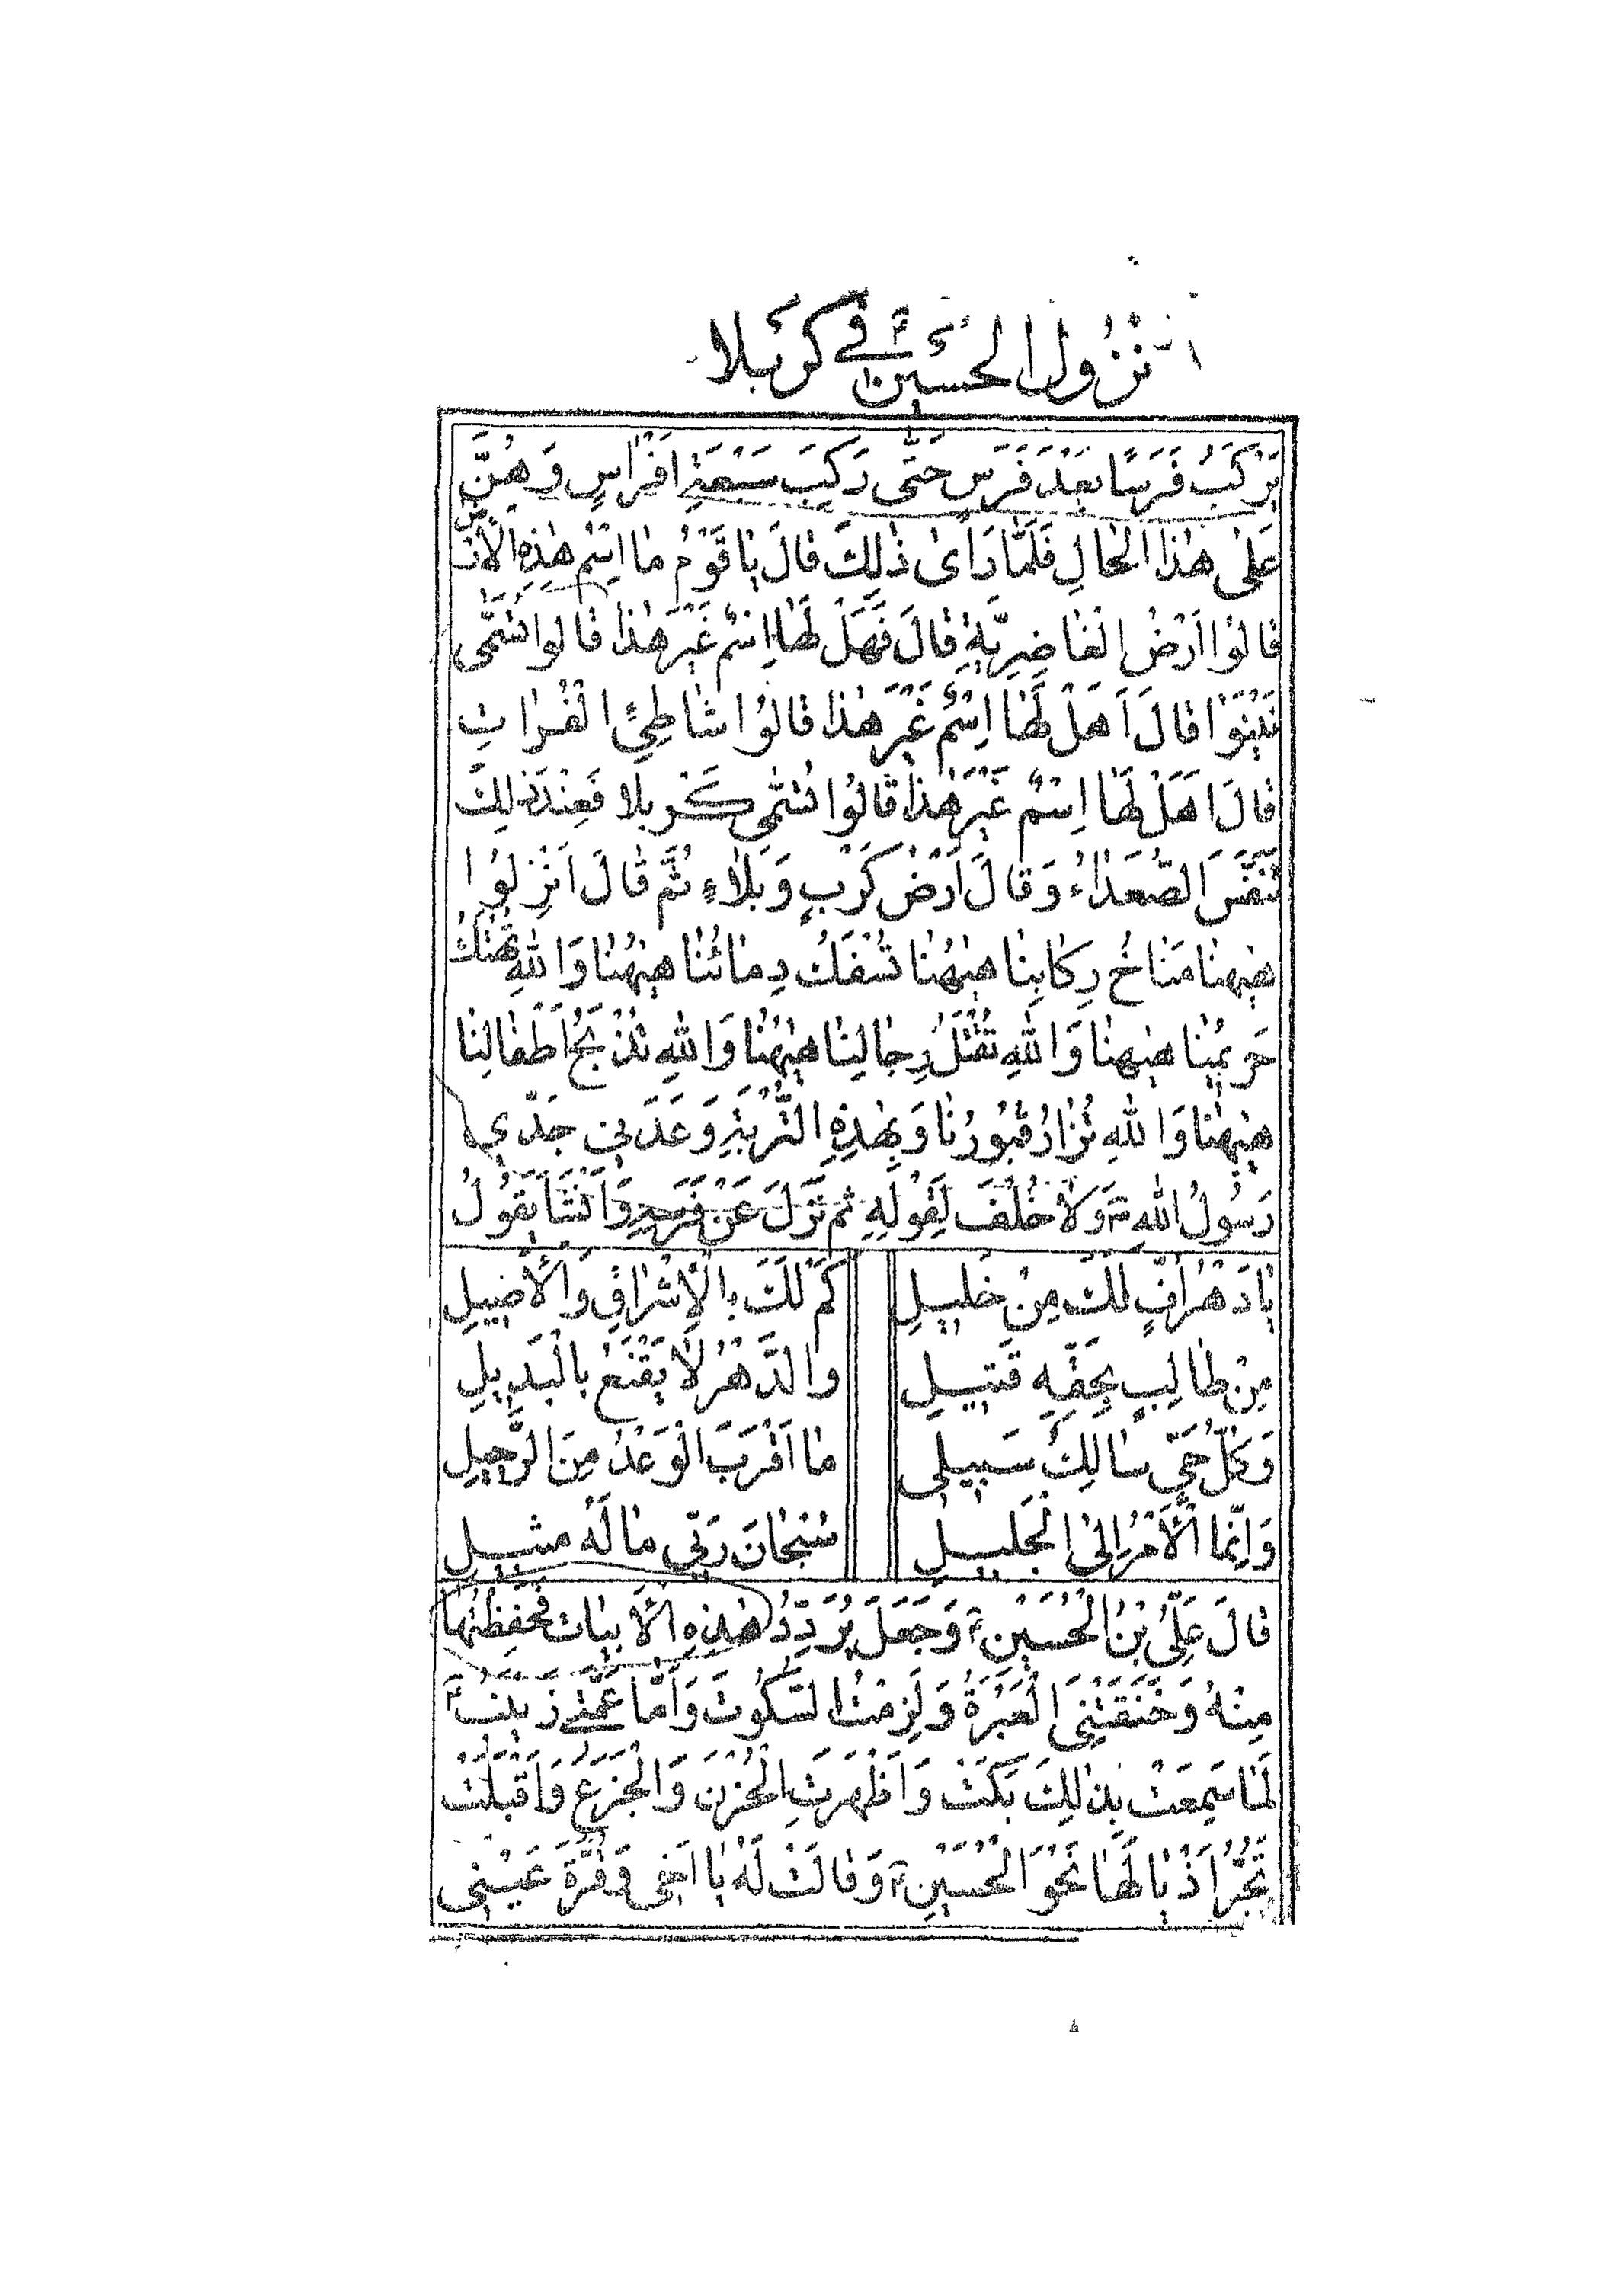 نزول الحسين ع في كربلا
يَرْكَبُ فَرَسًا بَعْدَ فَرَسٍ حَتّٰى رَكِبَ سَبْعَةَ اَفْرَاسٍ وَهُنَّ
عَلٰى هٰذَا الْحَالِ فَلَمَّا رَاٰى ذٰلِكَ قَالَ يٰا قَوْمُ مٰا اِسْمُ هٰذِهِ الْاَرْضِ
قٰالُوْا اَرْضُ الْغٰاضِرِيَّةِ قٰالَ فَهَلْ لَهٰا اِسْمٌ غَيْرَ هٰذٰا قٰالُوا تُسَمّٰى
نَيْنَوٰا قٰالَ اَهَلْ لَهٰا اِسْمٌ غَيْرَ هٰذٰا قٰالُوْا شٰاطِئُ الْفُرٰاتِ
قٰالَ اَهَلْ لَهٰا اِسْمٌ غَيْرَ هٰذٰا قٰالُوْا تُسَمّٰى كَرْبلا فَعِنْدَ ذٰلِكَ
تَنَفَّسَ الصُّعَدٰاءُ وَقٰالَ اَرْضُ كَرْبٍ وَبَلٰاءٍ ثُمَّ قٰالَ اَنْزِلُوْا
هٰيهُنٰا مَنٰاخُ رِكٰابِنٰا هٰيهُنٰا تُسْفَكُ دِمٰائُنٰا هٰيهُنٰا وَاللّٰهِ تُهْتَكُ
حَرِيمُنٰا هٰيهُنٰا وَاللّٰهِ تُقْتَلُ رِجٰالِنٰا هٰيهُنٰا وَاللّٰهِ تُذْبَحُ اَطْفٰالِنٰا
هٰيهُنٰا وَاللّٰهِ تُزٰارُ قُبُورُنٰا وَبِهٰذِهِ التُّرْبَةِ وَعَدَنِي جَدِّي
رَسُولُ اللّٰهِ ص وَلٰا خُلْفَ لِقَوْلِهِ ثم نَزَلَ عَنْ فَرَسِهِ وَاَنْشَأَ يَقُولُ
يٰا دَهْرُ اُفٍّ لَكَ مِنْ خَلِيلِ كَمْ لَكَ بِالْاِشْرٰاقِ وَالْاَصِيلِ
مِنْ طٰالِبٍ بِحَقِّهِ قَتِيلِ وَالدَّهْرُ لٰا يَقْنَعُ بِالْبَدِيلِ
وَكُلُّ حَيٍّ سٰالِكٌ سَبِيلِي مٰا اَقْرَبَ الْوَعْدُ مِنَ الرَّحِيلِ
وَاِنَّمَا الْاَمْرُ اِلَى الْجَلِيلِ سُبْحٰانَ رَبِّي مٰا لَهُ مثيلِ
قٰالَ عَلِيُّ بْنُ الْحُسَيْنِ ع وَجَعَلَ يُرَدِّدُ هٰذِهِ الْاَبْيٰاتَ فَحَفِظْتُهٰا
مِنْهُ وَخَنَقَتْنِي الْعَبْرَةُ وَلَزِمْتُ السُّكُوتَ وَاَمّٰا عَمَّتِي زَيْنَبُ ع
لَمّٰا سَمِعَتْ بِذٰلِكَ بَكَتْ وَاَظْهَرَتِ الْحُزْنَ وَالْجَزَعَ وَاَقْبَلَتْ
تَجُرُّ اَذْيٰالَهٰا نَحْوَ الْحُسَيْنِ ع وَقٰالَتْ لَهُ يٰا اَخِي وَقُرَّةَ عَيْنِي